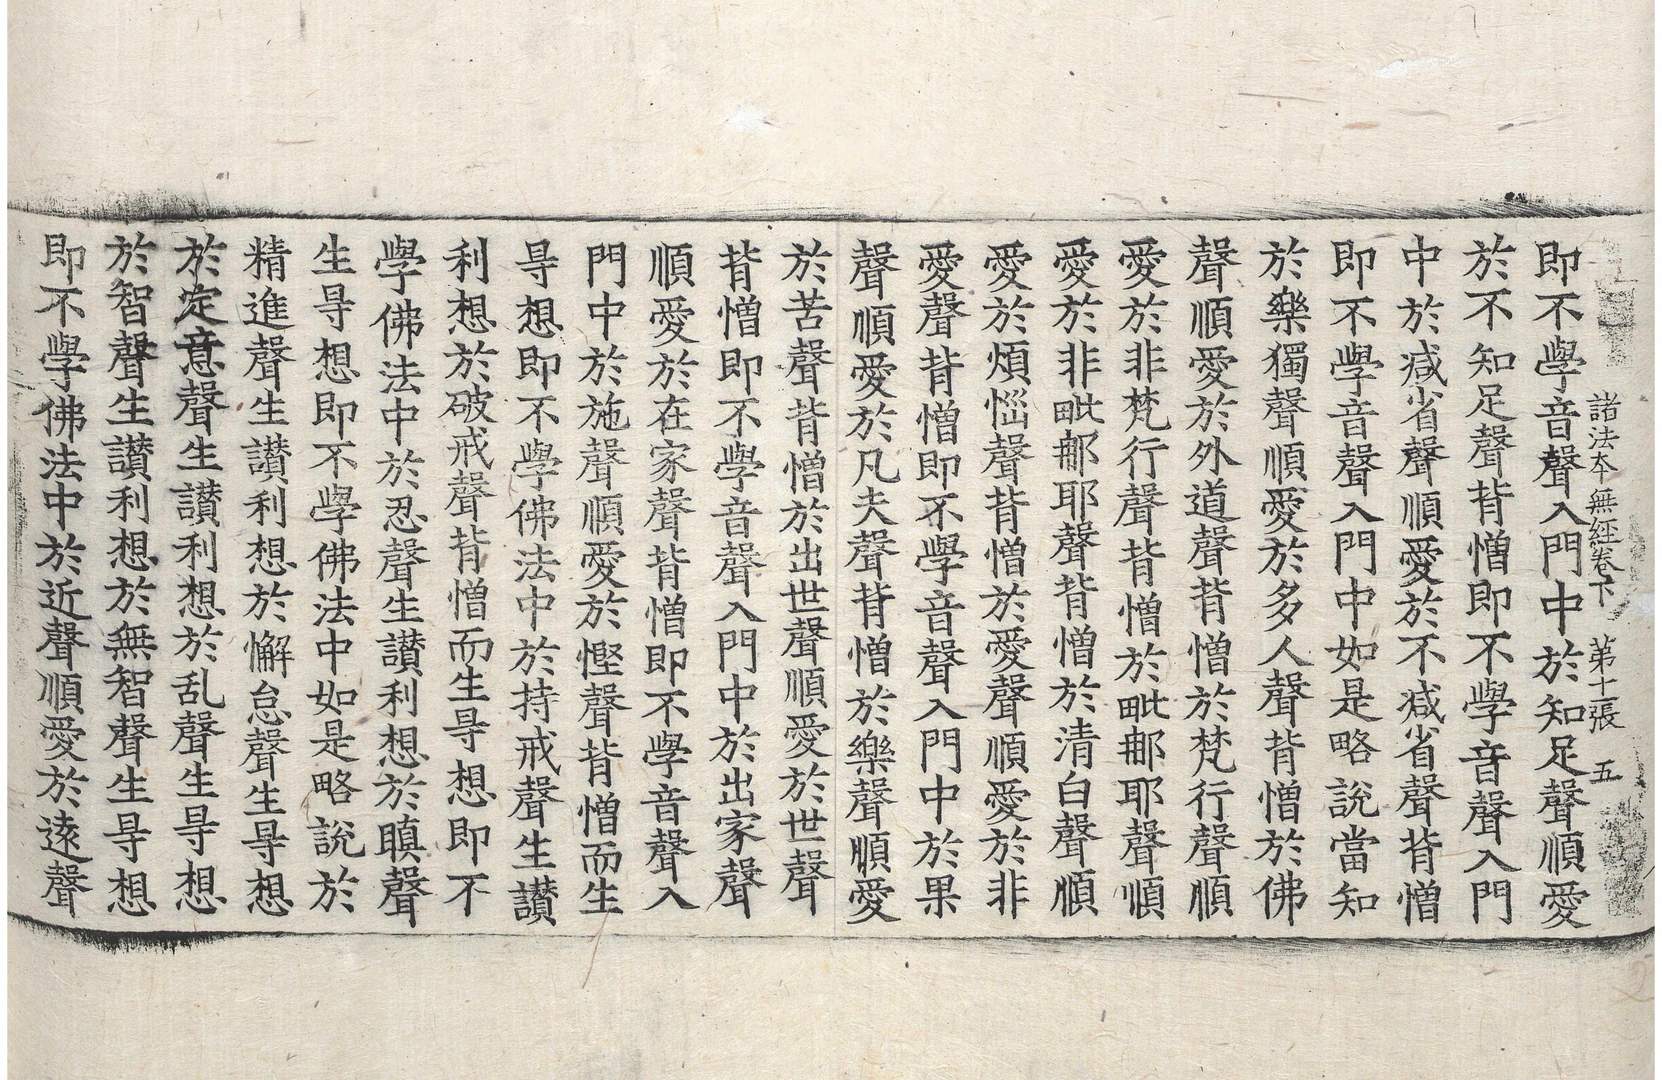 諸法本無經卷下 第十一張 五
即不學音聲入門中於知足聲順愛
於不知足聲背憎即不學音聲入門
中於减省聲順愛於不减省聲背憎
即不學音聲入門中如是略說當知
於樂獨聲順愛於多人聲背憎於佛
聲順愛於外道聲背憎於梵行聲順
愛於非梵行聲背憎於毗䣝耶聲順
愛於非毗䣝耶聲背憎於清白聲順
愛於煩惱聲背憎於愛聲順愛於非
愛聲背憎即不學音聲入門中於果
聲順愛於凡夫聲背憎於樂聲順愛
於苦聲背憎於出世聲順愛於世聲
背憎即不學音聲入門中於出家聲
順愛於在家聲背憎即不學音聲入
門中於施聲順愛於慳聲背憎而生
㝵想即不學佛法中於持戒聲生讃
利想於破戒聲背憎而生㝵想即不
學佛法中於忍聲生讃利想於瞋聲
生㝵想即不學佛法中如是略說於
精進聲生讃利想於懈怠聲生㝵想
於定意聲生讃利想於乱聲生㝵想
於智聲生讃利想於無智聲生㝵想
即不學佛法中於近聲順愛於遠聲